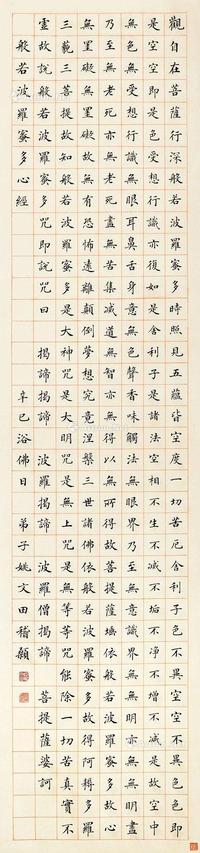 觀自在菩薩行深般若波羅蜜多時照見五蘊皆空度一切苦厄舍利子色不異空空不異色色即
是空空即是色受想行識亦復如是舍利子是諸法空相不生不滅不垢不淨不增不減是故空中
無色無受想行識無眼耳鼻舌身意無色聲香味觸法無眼界乃至無意識界無無明亦無無明盡
乃至無老死亦無老死盡無苦集滅道無智亦無得以無所得故菩提薩埵依般若波羅蜜多故心
無罣礙無罣礙故無有恐怖遠離顛倒夢想究竟涅槃三世諸佛依般若波羅蜜多故得阿耨多羅
三藐三菩提故知般若波羅蜜多是大神咒是大明咒是無上咒是無等等咒能除一切苦真實不
虛故說般若波羅蜜多咒即說咒曰 揭諦揭諦 波羅揭諦 波羅僧揭諦 菩提薩婆訶
般若波羅蜜多心經 辛巳浴佛日 弟子姚文田稽顙